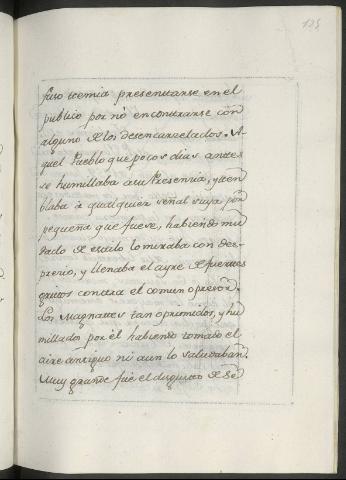 125
fuso temia presentarse en el
publico por no encontrarse con
alguno de los desencarcelados. A
quel Pueblo que pocos dias antes
se humillaba a su Presencia, y tem
blaba à qualquiera señal suya por
pequeña que fuese, habiendo mu
dado de estilo lo miraba con des-
precio, y llenaba el ayre de fuertes
gritos contra el comun opresor.
Los Magnates tan oprimidos, y hu
millados por èl habiendo tomado el
aire antiguo ni aun lo saludaban.
Muy grande fuè el disgusto de Se